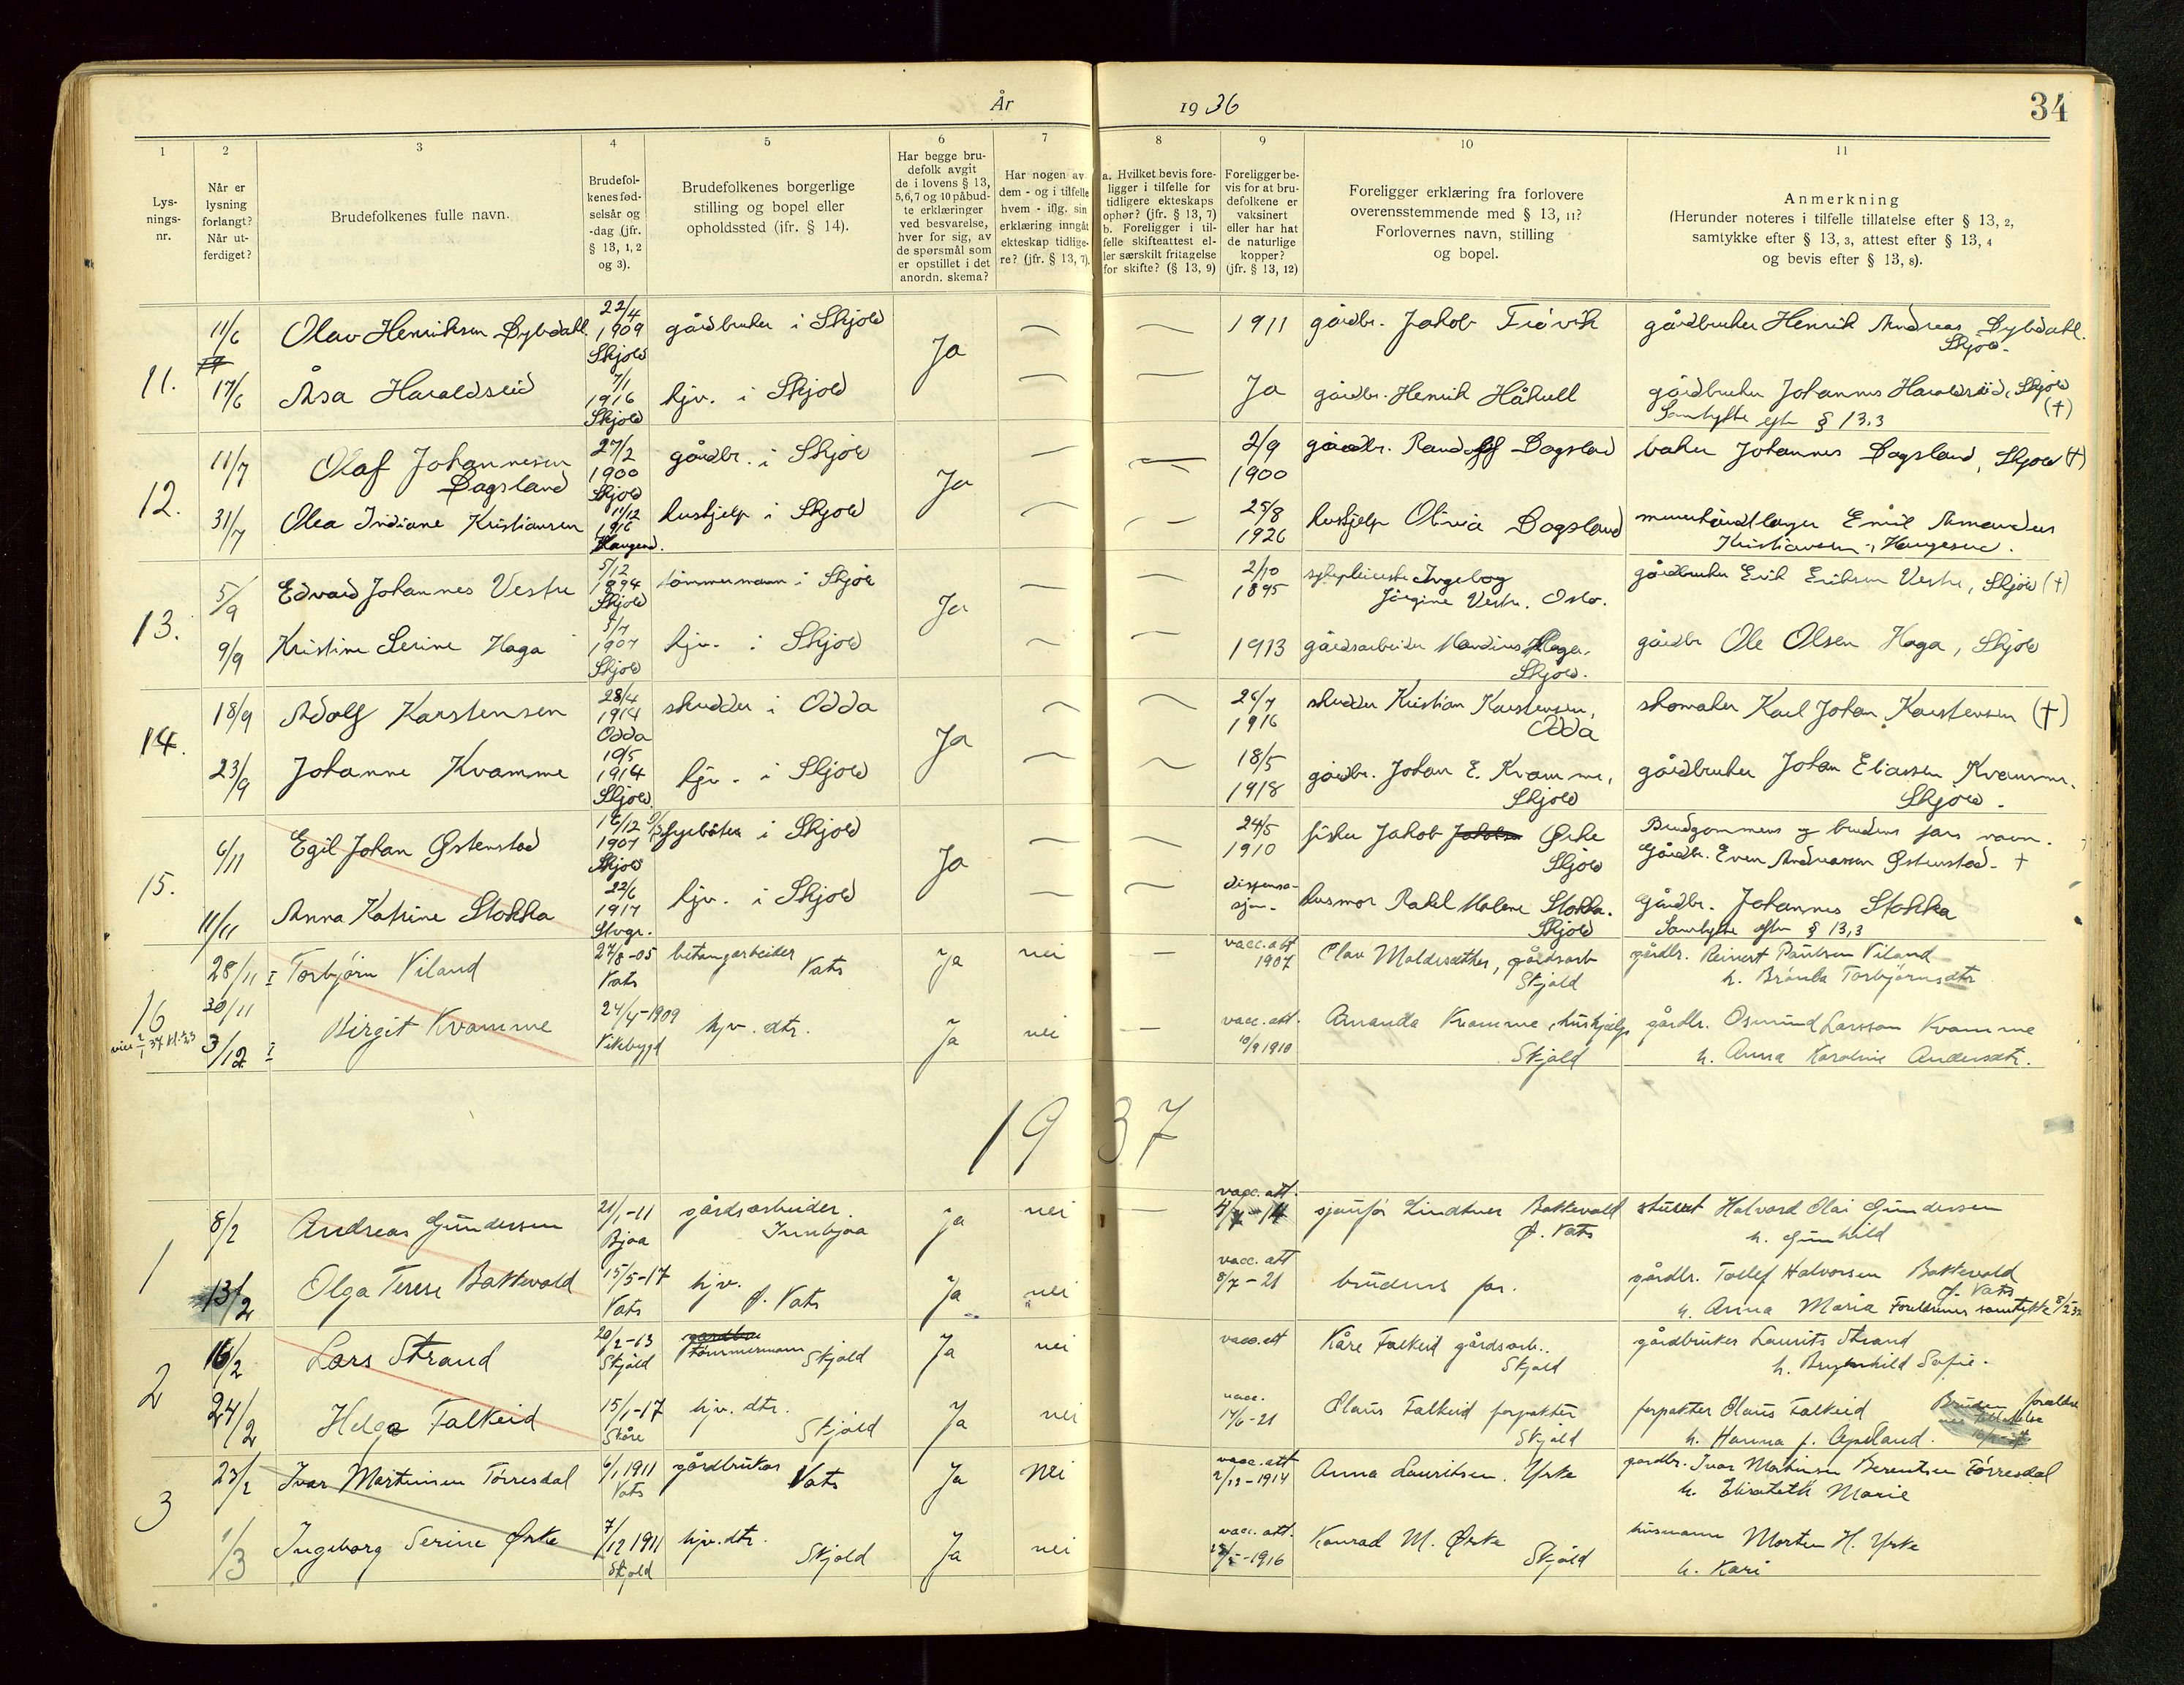 År 1936
34
1 2 3 4 5 6 7 8 9 10 11
Lys-
nings-
nr.
Når er
lysning
forlangt?
Når ut-
ferdiget?
Brudefolkenes fulle navn.
Brudefol-
kenes fød-
selsår og
-dag (jfr.
§ 13, 1, 2
og 3).
Brudefolkenes borgerlige
stilling og bopel eller
opholdssted (jfr. § 14).
Har begge bru-
defolk avgit
de i lovens § 13,
5,6,7 og 10 påbud-
te erklæringer
ved besvarelse,
hver for sig, av
de spørsmål som
er opstillet i det
anordn. skema?
Har nogen av
dem - og i tilfelle
hvem - iflg. sin
erklæring inngåt
ekteskap tidlige-
re? (jfr. § 13, 7).
a. Hvilket bevis fore-
ligger i tilfelle for
tidligere ekteskaps
ophør? (jfr. § 13, 7)
b. Foreligger i til-
felle skifteattest el-
ler særskilt fritagelse
for skifte? (§ 13, 9)
Foreligger be-
vis for at bru-
defolkene er
vaksinert
eller har hat
de naturlige
kopper?
(jfr. § 13, 12)
Foreligger erklæring fra forlovere
overensstemmende med § 13, 11?
Forlovernes navn, stilling
og bopel.
Anmerkning
(Herunder noteres i tilfelle tillatelse efter § 13, 2,
samtykke efter § 13, 3, attest efter § 13, 4
og bevis efter § 13, 8).
11.
11/6 Olav Henriksen Dybdahl 22/4 1909 Skjold gårdbruker i Skjold Ja — — 1911 gårdbr. Jakob Frøvik gårdbruker Henrik Andreas Dybdahl.
Skjold.
17/6 Åsa Haraldseid 7/1 1916 Skjold hjv. i Skjold — — Ja gårdbr. Henrik Håkull gårdbruker Johannes Haraldseid, Skjold (†)
Samtykke efter § 13,3
12.
11/7 Olaf Johannesen
Dagsland 27/2 1900 Skjold gårdbr. i Skjold Ja — — 2/9 1900 gårdbr. Dagsland baker Johannes Dagsland, Skjold (†)
31/7 Olea Indiane Kristiansen 11/12 1916 Haugesd. hushjelp i Skjold — — 25/8 1926 hushjelp Olivia Dagsland murerhåndlanger Emil Amandus
Kristiansen, Haugesund.
13.
5/9 Edvard Johannes Vestre 5/12 1894 Skjold tømmermann i Skjold Ja — — 2/10 1895 sykepleierske Ingeborg
Jørgine Vestre. Oslo. gårdbruker Erik Eriksen Vestre, Skjold (†)
9/9 Kristine Serine Haga 5/7 1907 Skjold hjv. i Skjold — — 1913 gårdsarbeider Mandius Haga,
Skjold. gårdbr Ole Olsen Haga, Skjold
14.
18/9 Adolf Karstensen 28/4 1914 Odda skredder i Odda Ja — — 26/7 1916 skredder Kristian Karstensen,
Odda skomaker Karl Johan Karstensen (†)
23/9 Johanne Kvamme 10/5 1914 Skjold hjv. i Skjold — — 18/5 1918 gårdbr. Johan E. Kvamme,
Skjold gårdbruker Johan Eliassen Kvamme.
Skjold.
15.
6/11 Egil Johan Østenstad 16/12 1907 Skjold fyrbøter i Skjold Ja — — 24/5 1910 fisker Jakob Ørke
Skjold Brudgommens og brudens fars navn.
Gårdbr. Even Andreassen Østenstad. †
11/11 Anna Katrine Stokka 22/6 1917 Stvgr. hjv. i Skjold — — dispensa-
sjon. husmor Rakel Malene Stokka.
Skjold Gårdbr. Johannes Stokka
Samtykke efter § 13,3
16
28/11 Torbjørn Viland 27/8-05 Vats betongarbeider
Vats Ja nei — vacc. att
1907 Olav Maldesæther, gårdsarb
Skjold gårdbr. Reinert Paulsen Viland
h. Brønla Torbjørnsdtr
30/11
3/12 Birgit Kvamme 24/4-1909 Vikebygd hjv. dtr. Ja nei — vacc. att.
10/9 1910 Amanda Kvamme, hushjelp
Skjold gårdbr. Osmund Larsson Kvamme
h. Anna Karoline Andersdtr.
1937
1
8/2 Andreas Gundersen 21/1-11 Bjoa gårdsarbeider.
Innbjoa ja nei — vacc. att.
sjaufør Lindtner Bakkevold
Ø. Vats Halvard Olai Gundersen
h. Gunhild
13/2 Olga Terese Bakkevold 15/5-17 Vats hjv.
Ø. Vats Ja nei vacc. att
8/7-21 brudens far. gårdbr. Tollef Halvorsen Bakkevold
Ø. Vats
h. Anna Maria Foreldrenes samtykke 8/2-37
2
16/2 Lars Strand 20/2-13 Skjold tømmermann Skjold Ja nei vacc. att Kåre Falkeid gårdsarb.
Skjold gårdbruker Laurits Strand
h. Brynhild Sofie.
24/2 Helga Falkeid 15/1-17 Skåre hjv. dtr.
Skjold Ja nei vacc.
14/6-21 Olaus Falkeid forpakter
Skjold forpakter Olaus Falkeid
h. Hanna f. Apeland.
Brudens foreldre
3
23/2 Ivar Martinsen Tørresdal 6/1 1911 Vats gårdbruker
Vats Ja Nei vacc. att
2/12-1914 Anna Lauritsen. Yrke gardbr. Ivar Martinsen Berentsen Tørresdal
h. Elisabeth Marie
1/3 Ingeborg Serine Ørke 7/12 1911 Skjold hjv. dtr.
Skjold Ja nei vacc. att.
1916 Konrad M. Ørke
Skjold husmann Morten H. Yrke
h. Kari